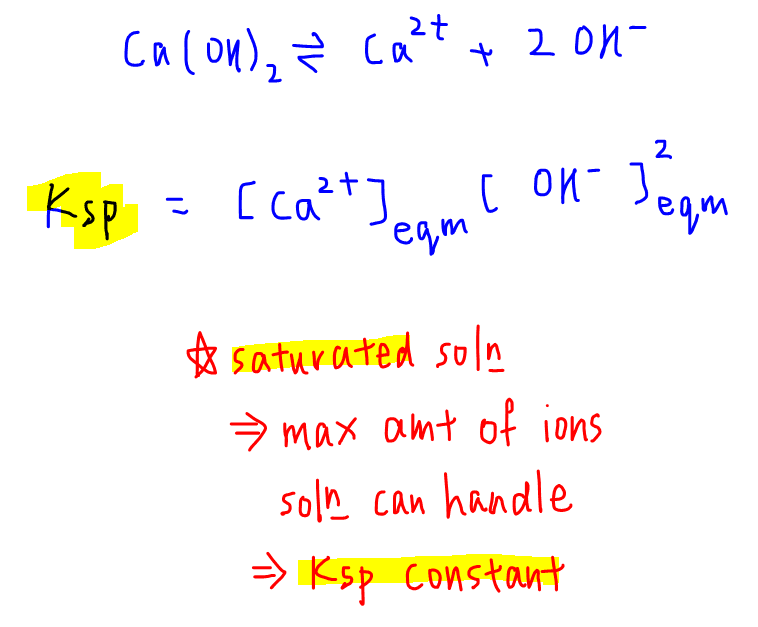 Ca(OH)₂ ⇌ Ca²⁺ + 2 OH⁻
Ksp = [Ca²⁺]eqm [ OH⁻ ]²eqm
☆ saturated soln
⇒ max amt of ions
soln can handle
⇒ Ksp constant